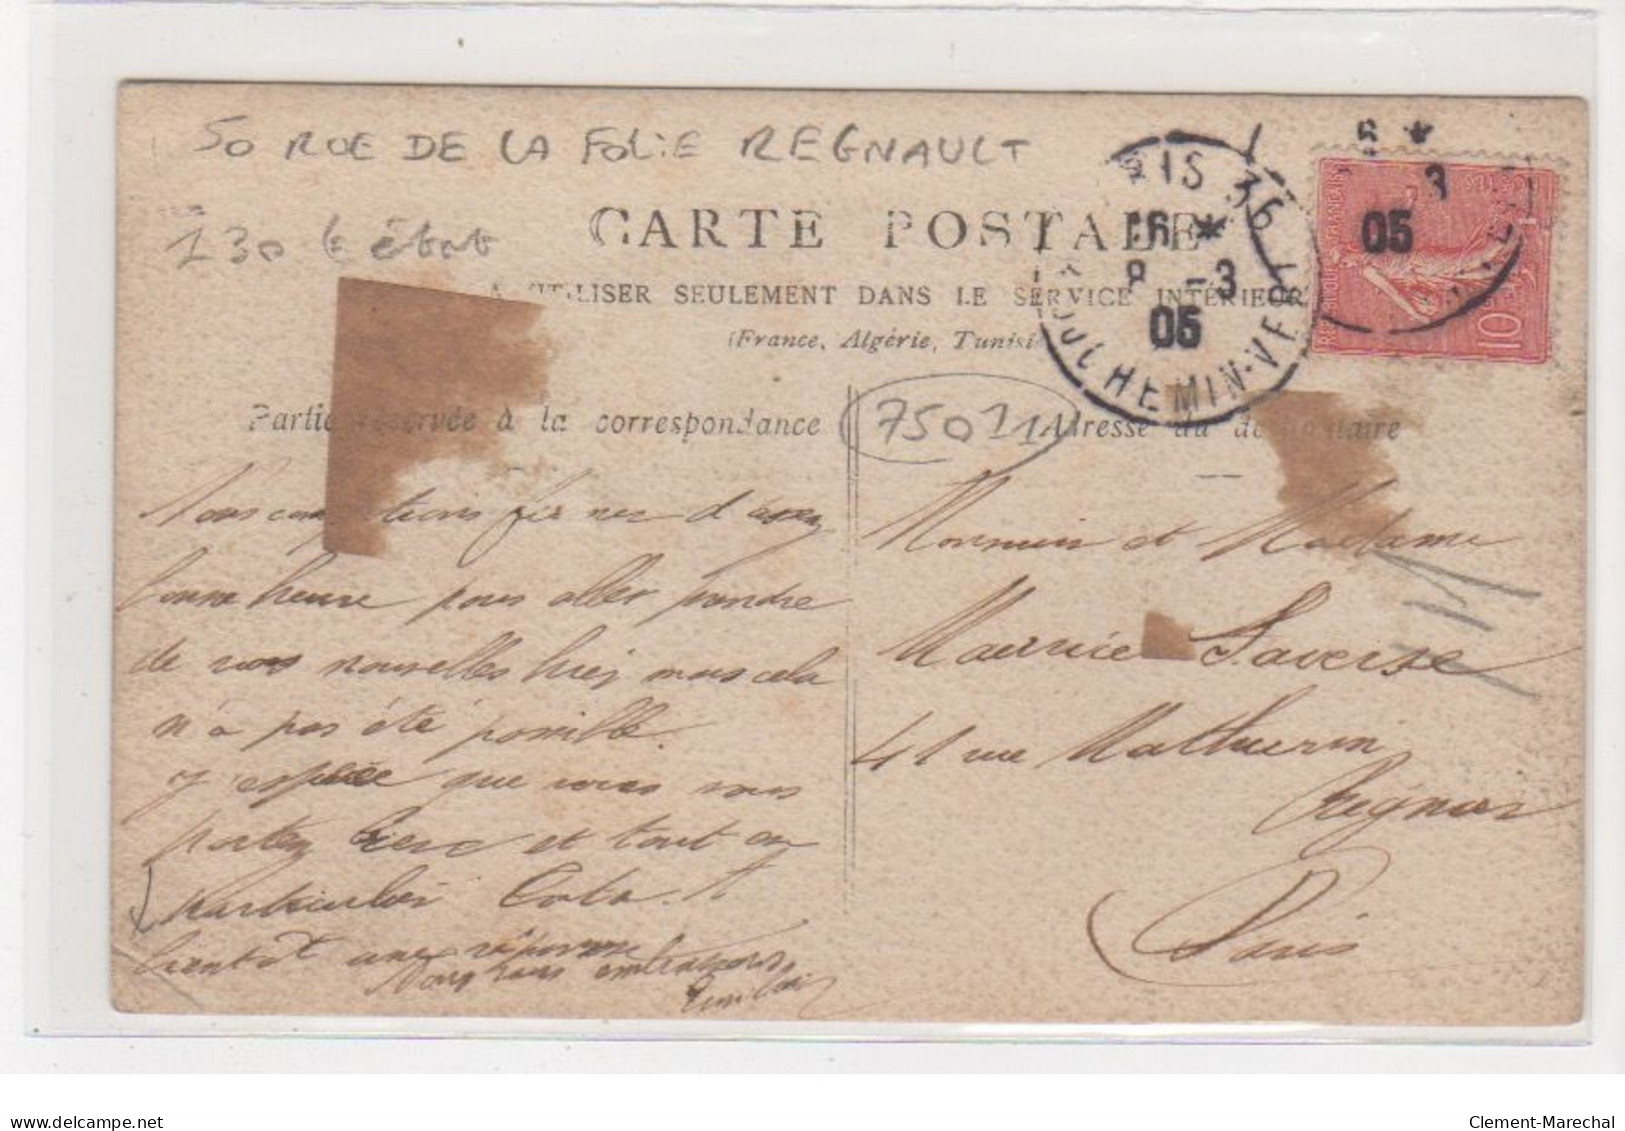 50 RUE DE LA FOLIE REGNAULT
130 le état
CARTE POSTALE
A UTILISER SEULEMENT DANS LE SERVICE INTÉRIEUR
(France, Algérie, Tunisie
Partie réservée à la correspondance
75011
Adresse du destinataire
PARIS 36
16 *
8 -3
05
CHEMIN-VERT
3
05
10
Nous comptions d'assez
bonne heure pour aller prendre
de vos nouvelles hier mais cela
n'a pas été possible.
J'espère que vous vous
portez bien et tout en
particulier
bientôt une réponse
Nous vous embrassons
Monsieur et Madame
Maurice Laverse
41 rue Mathurin
Regnier
Paris
delcampe.net
Clement-Marechal